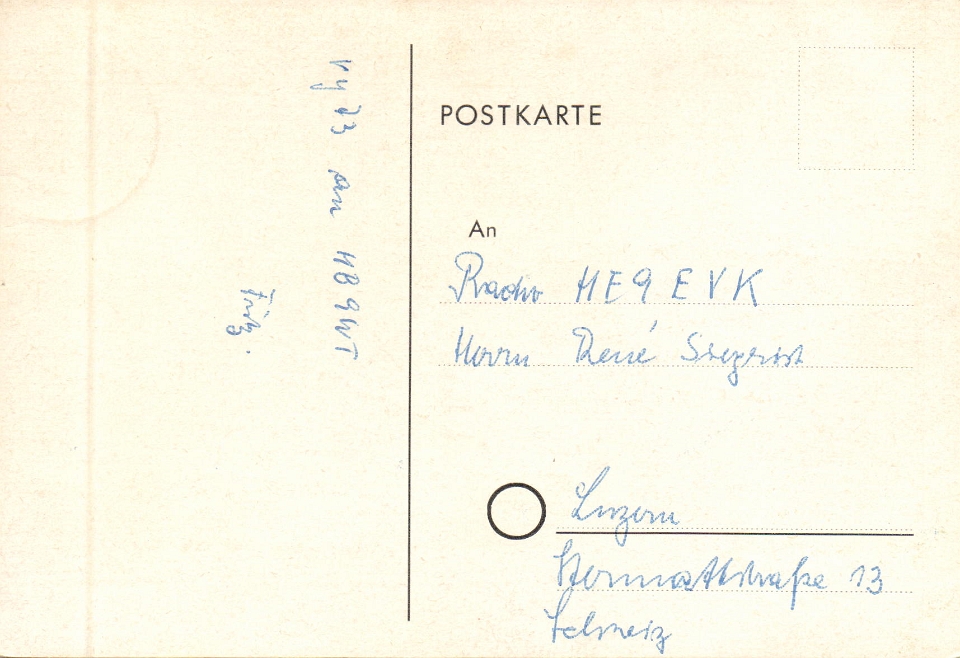 vy 73 an HB9WT
Fritz.
POSTKARTE
An
Radio HE9EVK
Herrn René Siegrist
Luzern
13
Schweiz